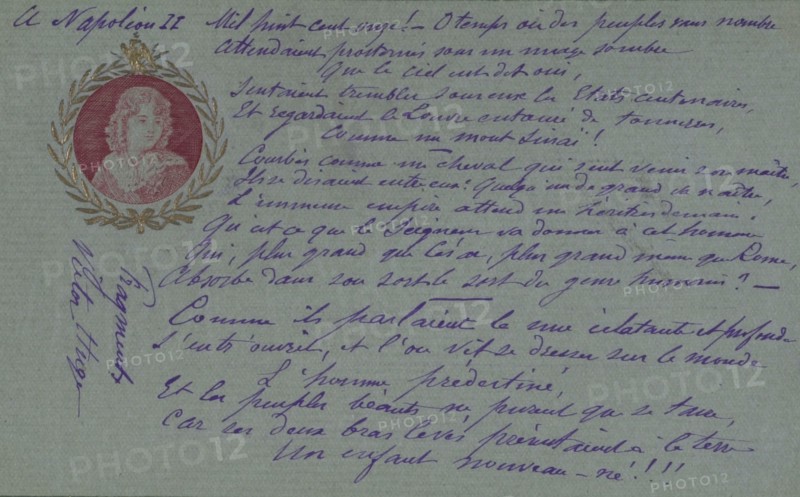 A Napoléon II
Mil huit cent onze! — O temps où des peuples sans nombre
Attendaient prosternés sous un nuage sombre
Que le ciel eut dit oui,
Sentaient trembler sous eux les Etats centenaires,
Et regardaient le Louvre entouré de tonnerres,
Comme un mont Sinaï!
Courbés comme un cheval qui sent venir son maître,
Ils se disaient entre eux: Quelqu'un de grand va naître,
L'immense empire attend un héritier demain.
Qu'est ce que le Seigneur va donner à cet homme
Qui, plus grand que César, plus grand même que Rome,
Absorbe dans son sort le sort du genre humain? —
Comme ils parlaient la nue éclatante et profonde
S'entr'ouvrit, et l'on vit se dresser sur le monde
L'homme prédestiné,
Et les peuples béants ne purent que se taire,
Car ses deux bras levés présentaient à la terre
Un enfant nouveau-né!!!!
Fragments
Victor Hugo
PHOTO12